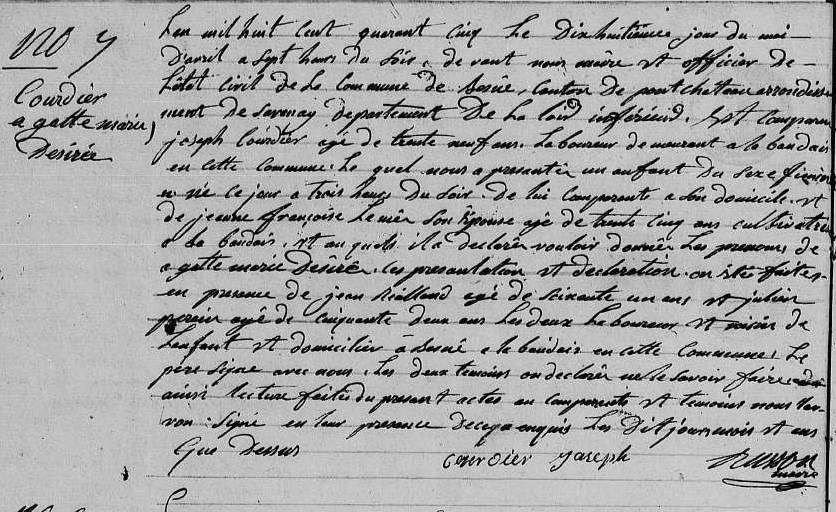 No 7
Courdier
agatte marie
Désirée
L'an mil huit cent quarant cinq le Dixhuitieme jour du moi
D'avril a sept heurs du soir, de vant nous maire et officier de
L'état civil de la Commune de besné, Canton de pont chateau arrondisse
ment de Savenay departement De La loire inférieur. Est comparu
joseph Courdier agé de trente neuf ans. Laboureur demeurant a la baudais
en cette commune. Le quel nous a presentée un enfant du sexe féminin
née ce jour a trois heurs du soir de lui comparants a son domicile et
de jeanne françoise son Epouse agé de trente cinq ans cultivatrice
a la baudais. et au quels il a declarée vouloir donnée les prenoms de
agatte marie Désirée. les presantation et declaration on étée faites
en presence de jean Rialland agé de soixante un ans et julien
perrin agé de cinquante deux ans les deux Laboureur et voisin de
Lenfant et domicilier à Besné a la baudais en cette Commune. Le
père signe avec nous. les deux temoins on declarée ne le savoir faire
ainsi lecture faites du present actes au comparants et temoins nous la
von signé en leur presence les Dit jour mois et ans
Que Dessus
Courdier Joseph
maire